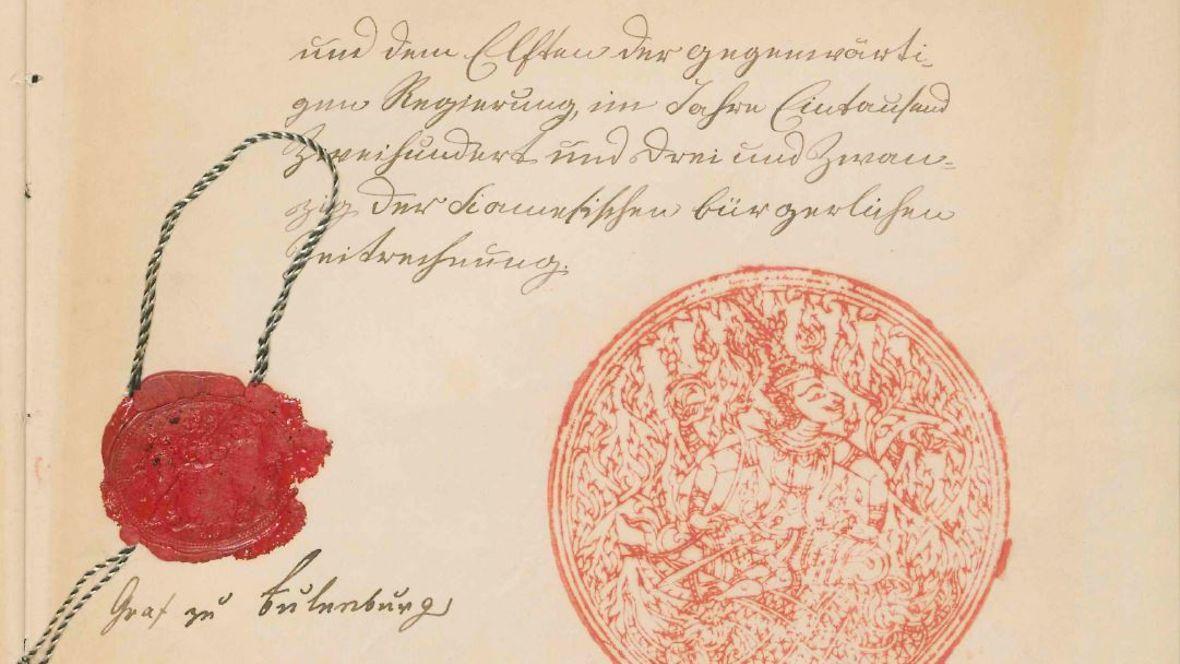 und dem Elften der gegenwärti-
gen Regierung, im Jahre Eintausend
Zweihundert und Drei und Zwan-
zig der Siamesischen bürgerlichen
Zeitrechnung.
Graf zu Eulenburg